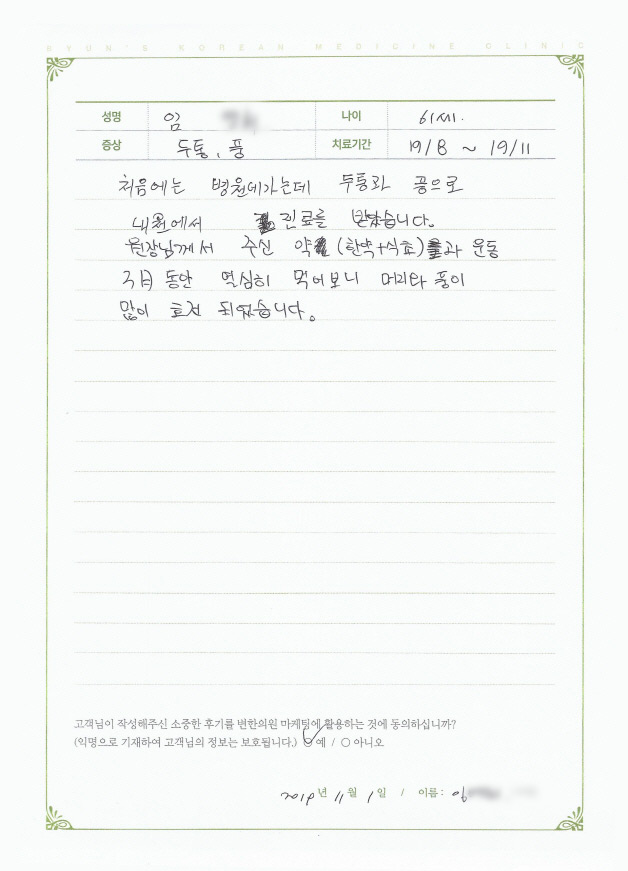 HYUN'S KOREAN MEDICINE CLINIC
성명 임 나이 61세.
증상 두통, 풍 치료기간 19/8 ~ 19/11
처음에는 병원에가는데 두통과 풍으로
내원에서 진료를 받았습니다.
원장님께서 주신 약 (한약+식초)과 운동
3月 동안 열심히 먹어보니 머리와 풍이
많이 호전 되었습니다.
고객님이 작성해주신 소중한 후기를 변한의원 마케팅에 활용하는 것에 동의하십니까?
(익명으로 기재하여 고객님의 정보는 보호됩니다.) ○ 예 / ○ 아니오
2019년 11월 1일 / 이름 : 임